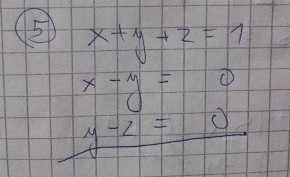 5
x + y + z = 1
x - y = 0
y - z = 0